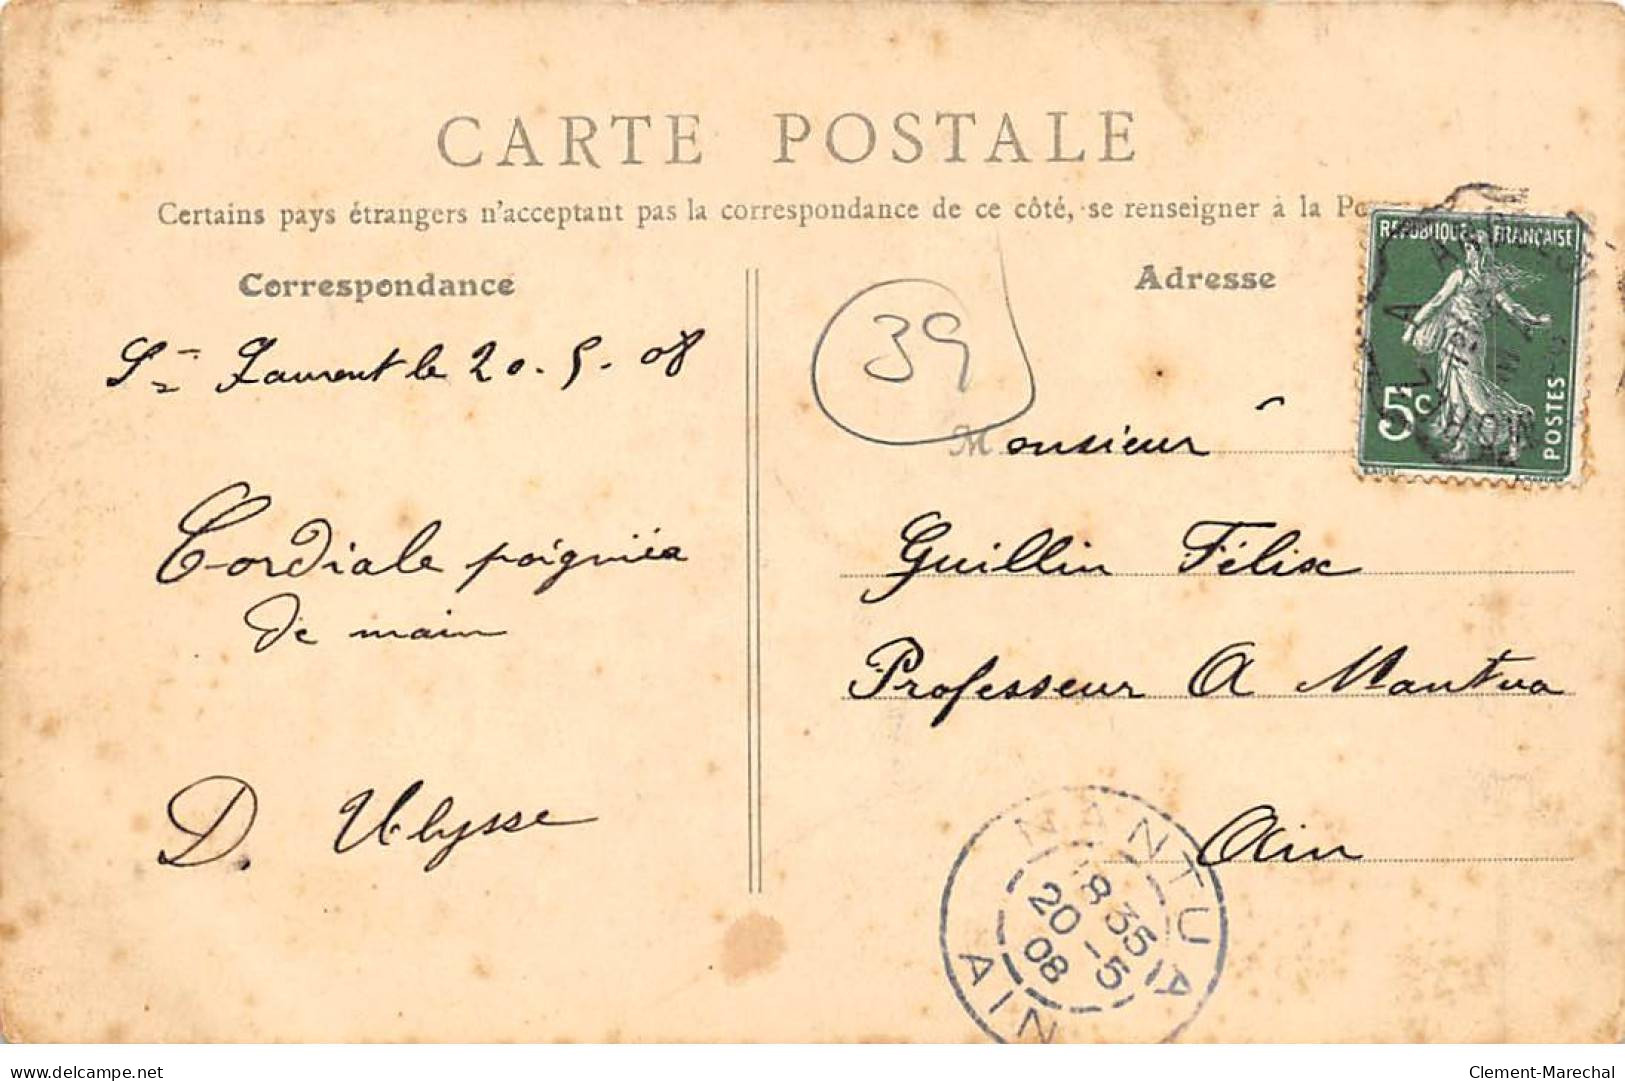 CARTE POSTALE
Certains pays étrangers n'acceptant pas la correspondance de ce côté, se renseigner à la Po
Correspondance
St Laurent le 20.5.08
Cordiale poignée
de main
D. Ulysse
39
Adresse
Monsieur
Guillin Félix
Professeur A Nantua
Ain
REPUBLIQUE FRANÇAISE
5c
POSTES
NANTUA
8 35
20 -5
08
AIN
Clement-Marechal